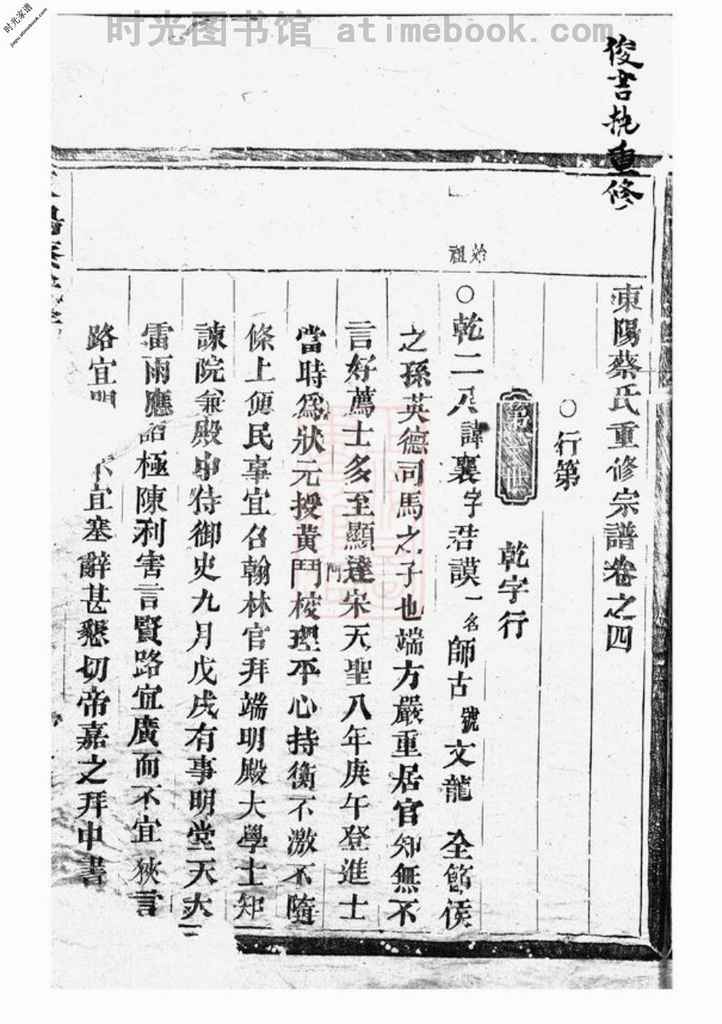 时光家谱
jiapu.atimebook.com
时光图书馆 atimebook.com
俊书执重修
東陽蔡氏重修宗譜卷之四
○行第
第一世 乾字行
始祖
○乾二八諱襄字君謨一名師古號文龍 全節侯
之孫英德司馬之子也端方嚴重居官知無不
言好薦士多至顯達宋天聖八年庚午登進士
當時爲狀元授黄門校理平心持衡不激不隨
條上便民事宜召翰林官拜端明殿大學士知
諫院兼殿中侍御史九月戊戌有事明堂天大
雷雨應詔極陳利害言賢路宜廣而不宜狹言
路宜 不宜塞辭甚懇切帝嘉之拜中書